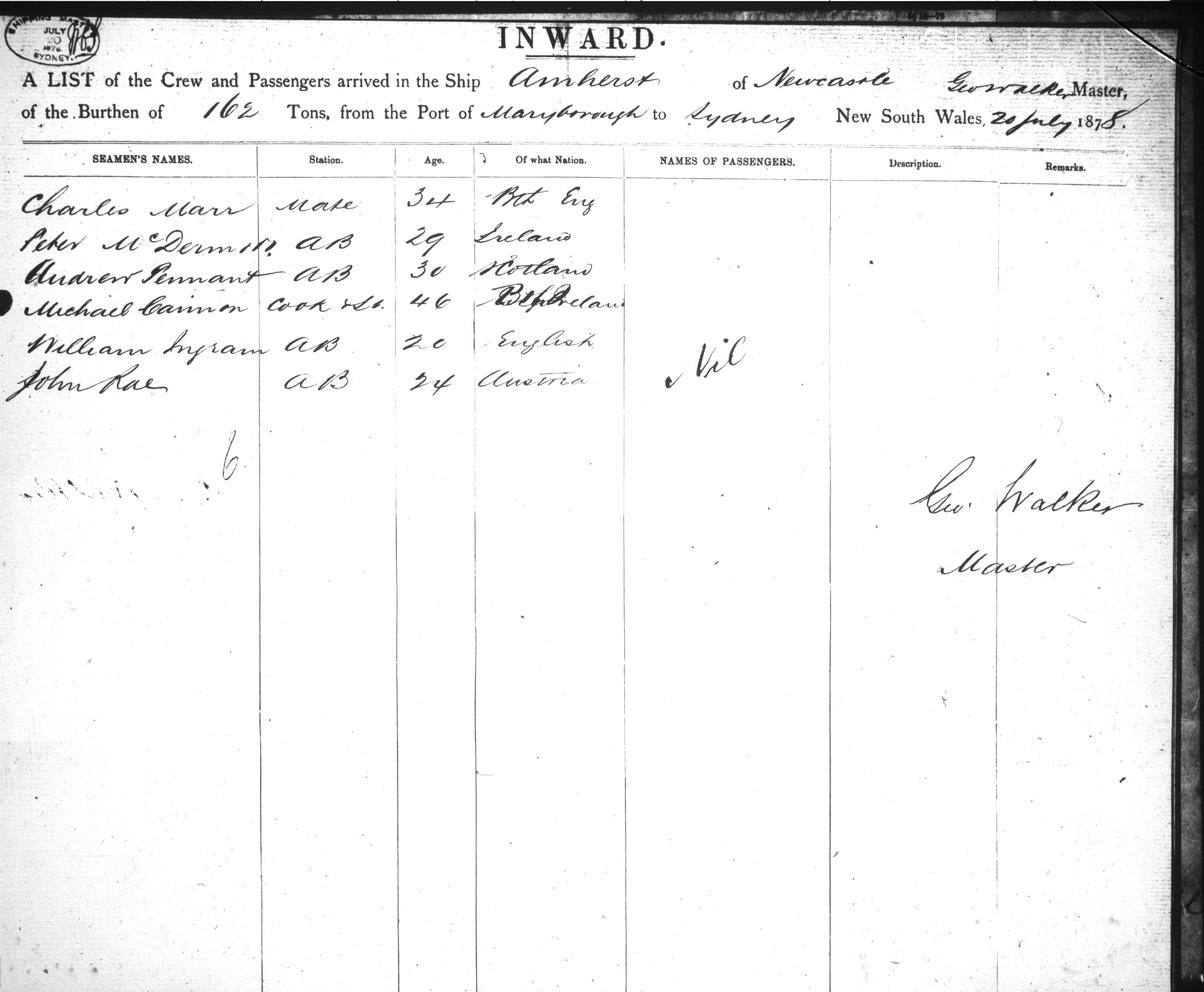 SHIPPING MASTER
JULY
20
1878
SYDNEY.
INWARD.
A LIST of the Crew and Passengers arrived in the Ship Amherst of Newcastle Geo Walker Master,
of the Burthen of 162 Tons, from the Port of Maryborough to Sydney New South Wales, 20 July 1878.
SEAMEN'S NAMES. Station. Age. Of what Nation. NAMES OF PASSENGERS. Description. Remarks.
Charles Marr Mate 34 Eng
Peter McDermott AB 29 Ireland
Andrew Pennant AB 30 Scotland
Michael Cannon Cook & St. 46 Ireland
William Ingram AB 20 English
Nil
John Rae AB 24 Austria
6
Geo. Walker
Master